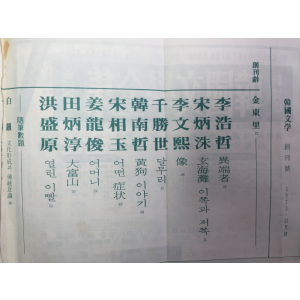 韓國文学 創刊號
創刊辭 金東里
李浩哲 異端者
宋炳洙 호海灘 이쪽과 저쪽
李文熙 像
千勝世 달무리
韓南哲 黃狗 이야기
宋相玉 어떤 症状
姜龍俊 어머니
田炳淳 大富山
洪盛原 열린 이빨
隨筆數題
白鐵